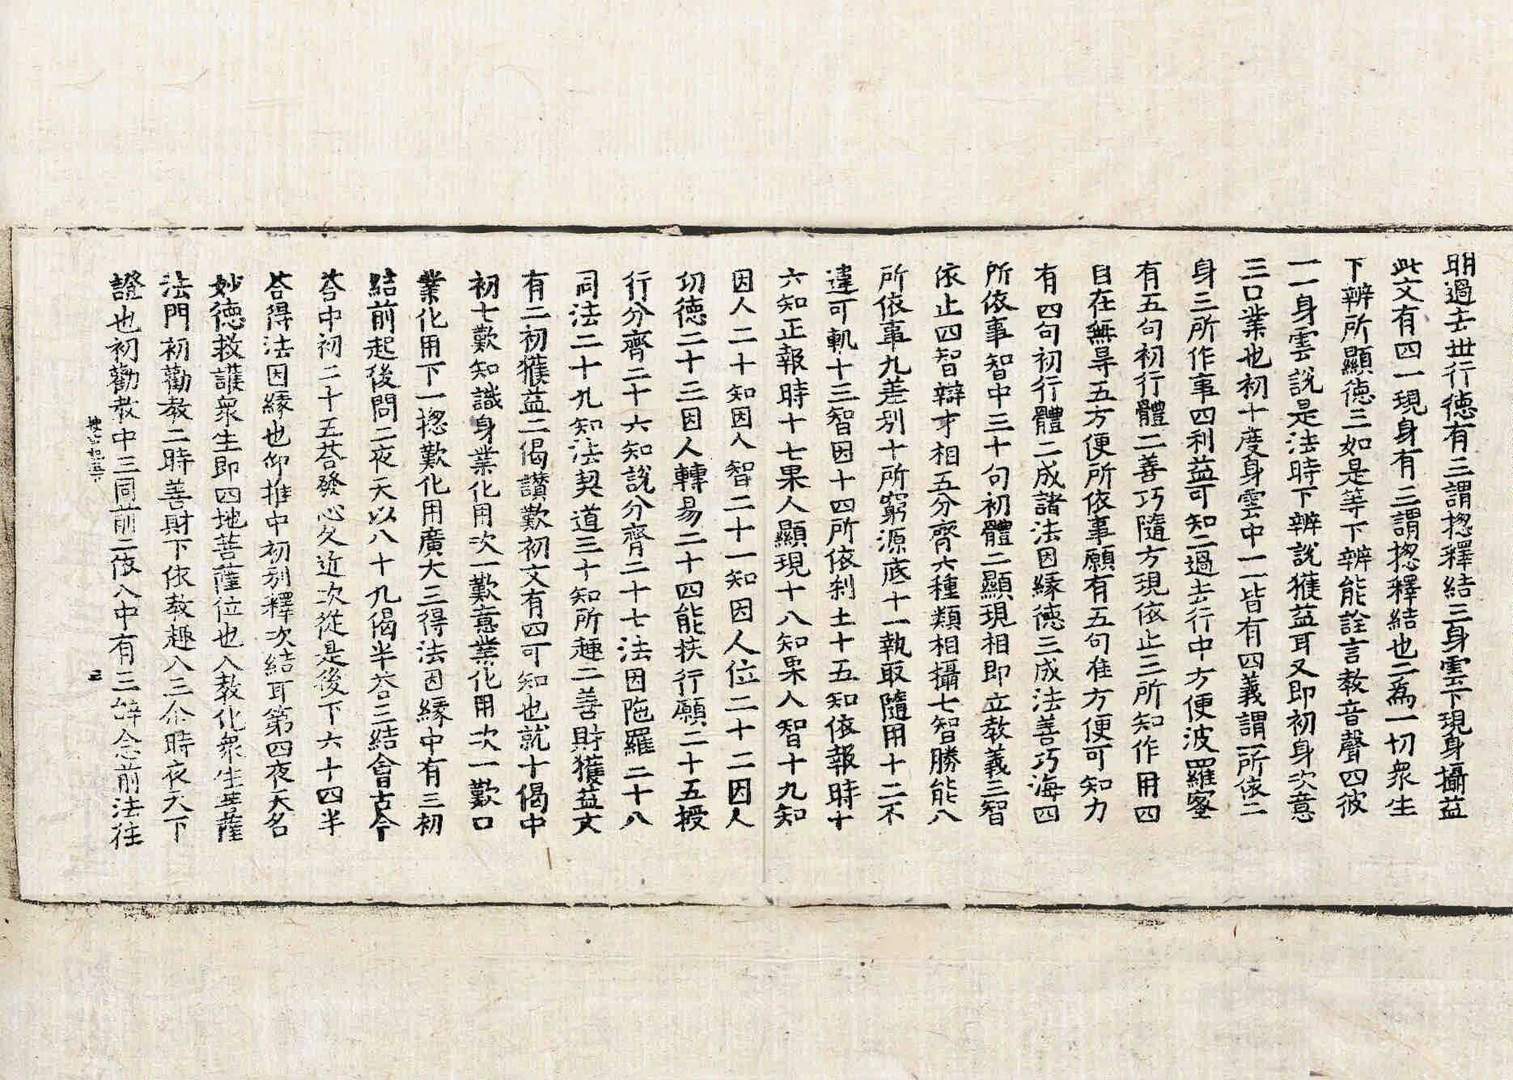 明過去世行德有三謂捴釋結三身雲下現身攝益
此文有四一現身有三謂捴釋結也二為一切衆生
下辨所顯德三如是等下辨能詮言教音聲四彼
一一身雲說是法時下辨說獲益耳又即初身次意
三口業也初十度身雲中一一皆有四義謂一所依二
身三所作事四利益可知二過去行中方便波羅蜜
有五句初行體二善巧隨方現依止三所知作用四
自在無㝵五方便所依事願有五句准方便可知力
有四句初行體二成諸法因緣德三成法善巧海四
所依事智中三十句初體二顯現相即立教義三智
依止四智辯才相五分齊六種類相攝七智勝能八
所依事九差別十所窮源底十一執取隨用十二不
違可軌十三智因十四所依刹土十五知依報時十
六知正報時十七果人顯現十八知果人智十九知
因人二十知因人智二十一知因人位二十二因人
功德二十三因人轉易二十四能扶行願二十五授
行分齊二十六知說分齊二十七法因陁羅二十八
同法二十九知法契道三十知所趣二善財獲益文
有二初獲益二偈讃歎初文有四可知也就十偈中
初七歎知識身業化用次一歎意業化用次一歎口
業化用下一捴歎化用廣大三得法因緣中有三初
結前起後問二夜天以八十九偈半荅三結會古今
荅中初二十五荅發心久近次從是後下六十四半
荅得法因緣也仰推中初別釋次結耳第四夜天名
妙德救護衆生即四地菩薩位也入教化衆生菩薩
法門初勸教二時善財下依教趣入三尒時夜天下
證也初勸教中三同前二依入中有三一辟念前法往
三